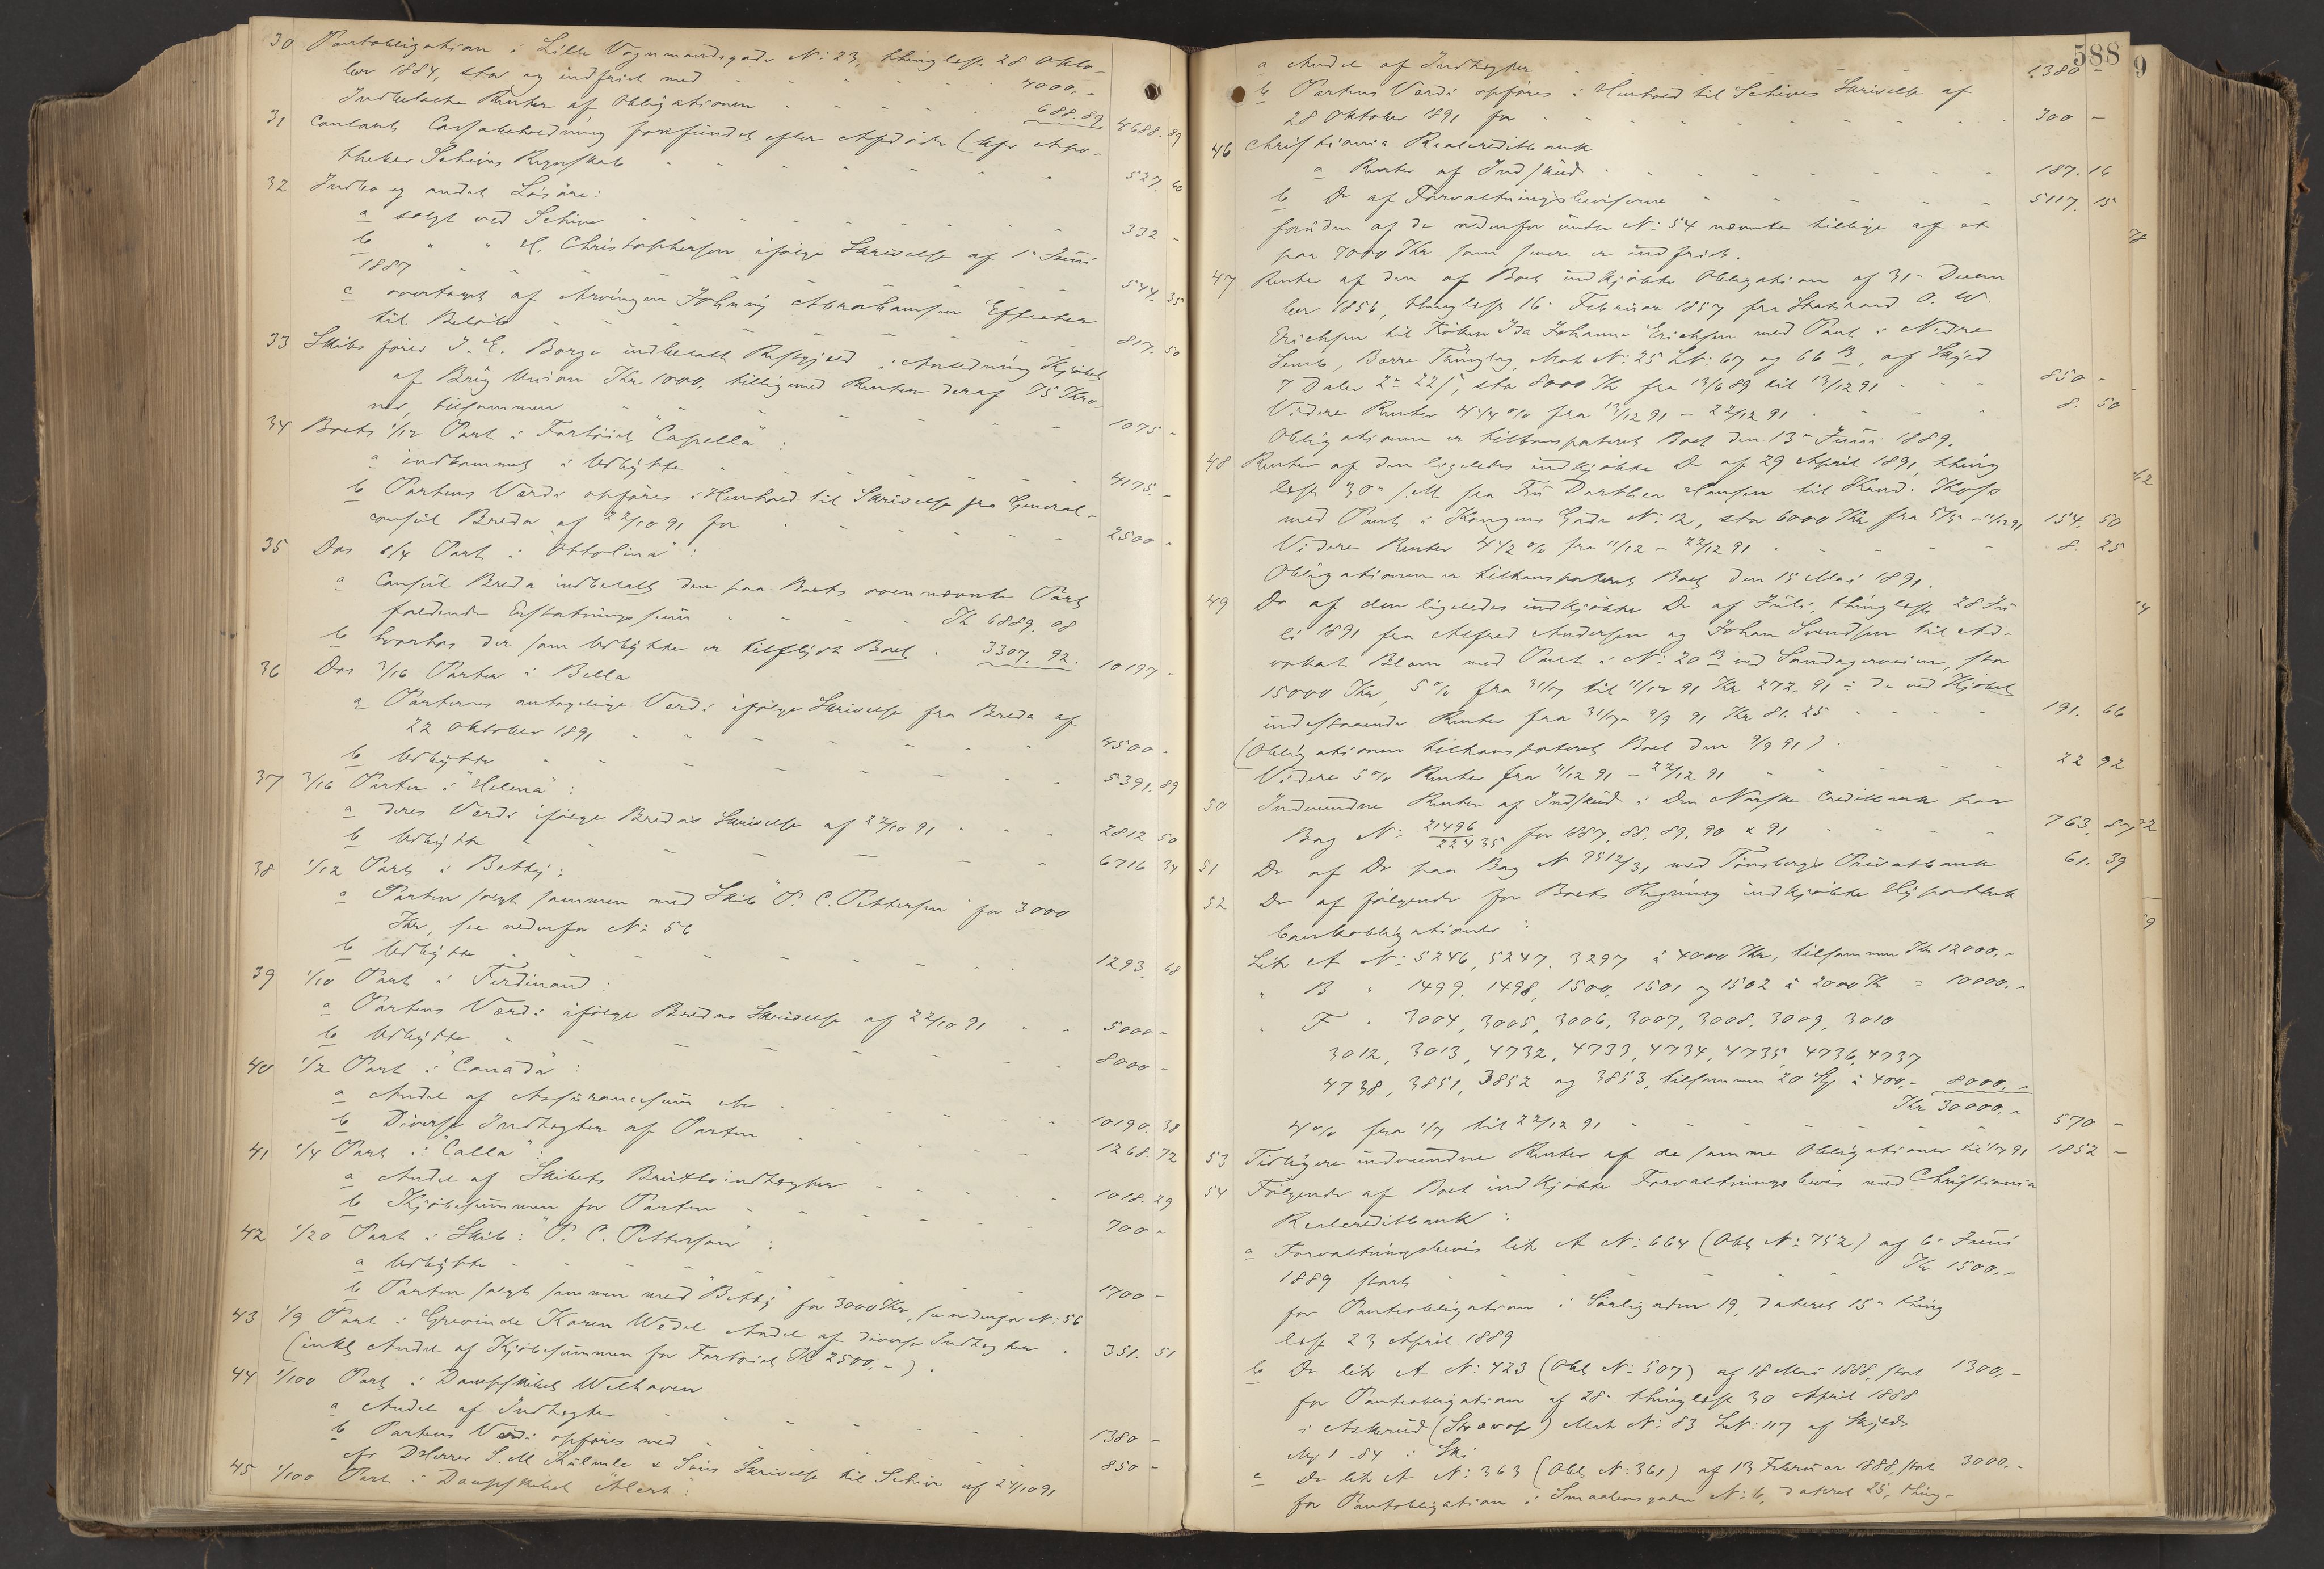 30 Pantobligation i Lille Vognmandsgade N: 23, thinglæst 28 Okto-
ber 1884, stor og indfriet med - - - 4000.-
Indbetalte Renter af Obligationen - - - 688.89 4688.89
31 Contant Cassabeholdning forefundet efter Afdøde (kfr Apo-
theker Schives Regnskab - - - 527.60
32 Indbo og andet Løsøre:
a solgt ved Schive - - - 332 -
b " " H. Christophersen ifølge Skrivelse af 1' Juni
1887 - - - 544.35
c overtaget af Arvingen Johnny Abrahamsen Effecter
til Beløb - - - 817.50
33 Skibsfører J. E. Borge indbetalt Restgjæld i Anledning Kjøbet
af Brig Union Kr 1000, tilligemed Renter deraf 75 Kro-
ner, tilsammen - - - 1075 -
34 Boets 1/12 Part i Fartøiet "Capella":
a indkommet i Udbytte - - - 4175.-
b Partens Værdi opføres i Henhold til Skrivelse fra General-
consul Breda af 22/10 91 for - - - 2500 -
35 Dos 1/4 Part i "Ottolina":
a Consul Breda indbetalt den paa Boets ovennævnte Part
faldende Erstatningssum - - - Kr 6889.08
b hvorhos der som Udbytte er tilflydt Boet . 3307.92. 10197 -
36 Dos 3/16 Parter i Bella
a Parternes antagelige Værdi ifølge Skrivelse fra Breda af
22 Oktober 1891 - - - 4500 -
b Udbytte - - - 5391.89
37 3/16 Parter i "Helena":
a deres Værdi ifølge Bredas Skrivelse af 22/10 91 - - - 2812 50
b Udbytte - - - 6716 34
38 1/12 Part i Betty:
a Parten solgt sammen med Skib "P. C. Petterson" for 3000
Kr, see nedenfor N: 56
b Udbytte - - - 1293.68
39 1/10 Part i Ferdinand:
a Partens Værdi ifølge Bredas Skrivelse af 22/10 91 - - 5000 -
b Udbytte - - - 8000 -
40 1/2 Part i "Canada":
a Andel af Assurancesum &c - - - 10190.38
b Diverse Indtægter af Parten - - - 1268.72
41 1/4 Part i "Calla":
a Andel af Skibets Bruttoindtægter - - - 1018.29
b Kjøbesummen for Parten - - - 700 -
42 1/20 Part i Skib: "P. C. Petterson":
a Udbytte - - - 1700 -
b Parten solgt sammen med "Betty" for 3000 Kr, see nedenfor N: 56
43 1/9 Part i Grevinde Karen Wedel Andel af diverse Indtægter . 351.51
(inkl Andel af Kjøbesummen for Fartøiet Kr 2500,-).
44 1/100 Part i Dampskibet Welhaven
a Andel af Indtægter - - - 1380 -
b Partens Værdi opføres med - - - 850 -
cfr DHerrer S. M Kulmle & Søns Skrivelse til Schive af 24/10 91
45 1/100 Part i Dampskibet "Alert":
588
9
a Andel af Indtægter - - - 1380 -
b Partens Værdi opføres i Henhold til Schives Skrivelse af
28 Oktober 1891 for - - - 300 -
46 Christiania Realcreditbank
a Renter af Indskud - - - 187.16
b Do af Forvaltningsbeviserne - - - 5117.15
foruden af de nedenfor under N: 54 nævnte tillige af et
paa 7000 Kr som senere er indfriet.
47 Renter af den af Boet indkjøbte Obligation af 31- Decem
ber 1856, thinglæst 16- Februar 1857 fra Statsraad O. W.
Erichsen til Frøken Ida Johanna Erichsen med Pant i Nedre
Semb, Borre Thinglag, Mat N: 25 LN: 67 og 66 B, af Skyld
7 Daler 2- 22 s, stor 8000 Kr fra 13/6 89 til 13/12 91 - - - 850 -
Videre Renter 4 1/4 % fra 13/12 91 - 22/12 91 - - - 8.50
Obligationen er tiltransporteret Boet den 13- Juni 1889.
48 Renter af den ligeledes indkjøbte Do af 29 April 1891, thing
læst 30" s.M fra Fru Dorthea Hansen til Kand. Koss
med Pant i Kongens Gade N: 12, stor 6000 Kr fra 5/5 - 11/12 91 154.50
Videre Renter 4 1/2 % fra 11/12 - 22/12 91 - - - 8.25
Obligationen er tiltransporteret Boet den 15 Mai 1891.
49 Do af den ligeledes indkjøbte Do af Juli, thinglæst 28 Ju
li 1891 fra Alfred Andersen og Johan Svendsen til Ad-
vokat Blom med Pant i N: 20 B ved Sandagerveien, stor
15000 Kr, 5 % fra 31/7 til 11/12 91 Kr 272.91 ÷ de ved Kjøbet
indestaaende Renter fra 31/7 - 9/9 91 Kr 81.25 - - - 191.66
(Obligationen tiltransporteret Boet den 9/9 91).
Videre 5 % Renter fra 11/12 91 - 22/12 91 - - - 22 92
50 Indvundne Renter af Indskud i Den Norske Creditbank paa
Bog N: 21496/22435 for 1887, 88, 89, 90 & 91 - - - 763.87
51 Do af Do paa Bog N 9512/31 med Tønsbergs Privatbank 61.39
52 Do af følgende for Boets Regning indkjøbte Hypothek
bankobligationer:
Litr A N: 5246, 5247. 3297 à 4000 Kr, tilsammen Kr 12000,-
" B " 1499. 1498, 1500, 1501 og 1502 à 2000 Kr = 10000.-
" F " 3004, 3005, 3006, 3007, 3008. 3009, 3010
3012, 3013, 4732, 4733, 4734, 4735, 4736, 4737
4738, 3851, 3852 og 3853, tilsammen 20 St à 400,- 8000,-
Kr 30000,-
4 % fra 1/7 til 22/12 91 - - - 570 -
53 Tidligere indvundne Renter af de samme Obligationer til 1/7 91 1852 -
54 Følgende af Boet indkjøbte Forvaltningsbevis med Christiania
Realcreditbank:
a Forvaltningsbevis litr A N: 664 (Obl N: 752) af 6- Juni
1889 stort - - - Kr 1500,-
for Pantobligation i Sørligaden 19, dateret 15" thing
læst 23 April 1889
b Do litr A N: 423 (Obl N: 507) af 18 Mai 1888, stort 1300,-
for Pantobligation af 28- thinglæst 30 April 1888
i Askerud Mat N: 83 LN: 117 af Skjeld
1-84 i Ski
c Do litr A N: 363 (Obl N: 361) af 13 Februar 1888, stort 3000.-
for Pantobligation i Smaalensgaden N: 6, dateret 25, thing-